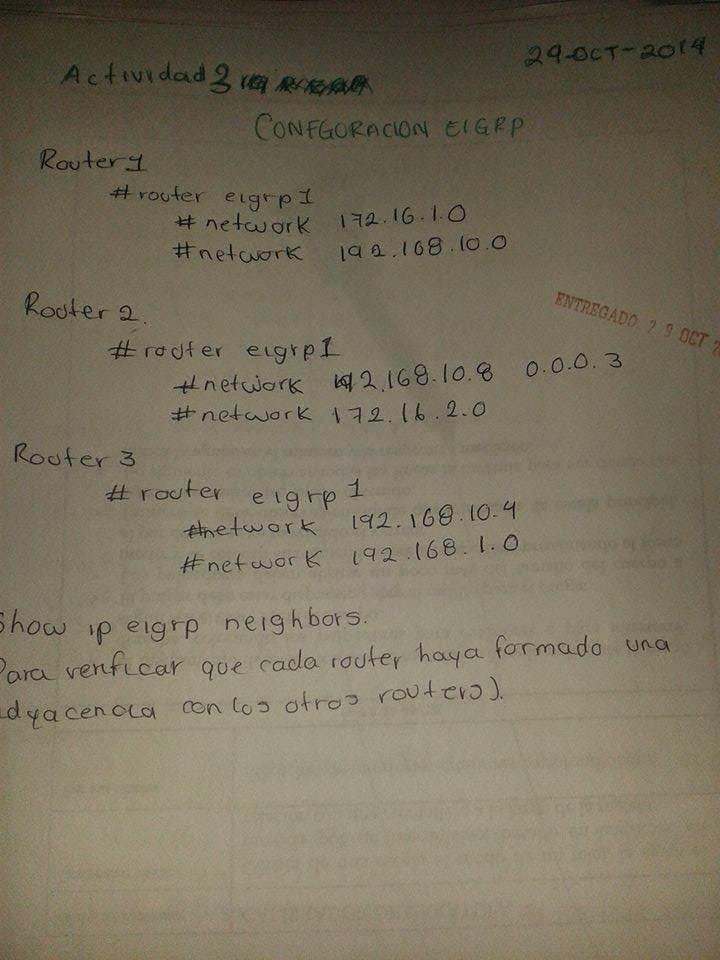 29-OCT-2014
Actividad 3
CONFGORACION EIGRP
Router 1
#router eigrp 1
#network 172.16.1.0
#network 192.168.10.0
Router 2.
#router eigrp 1
#network 192.168.10.8 0.0.0.3
#network 172.16.2.0
ENTREGADO 29 OCT
Router 3
#router eigrp 1
#network 192.168.10.4
#network 192.168.1.0
Show ip eigrp neighbors.
Para verificar que cada router haya formado una
adyacencia con los otros routers).